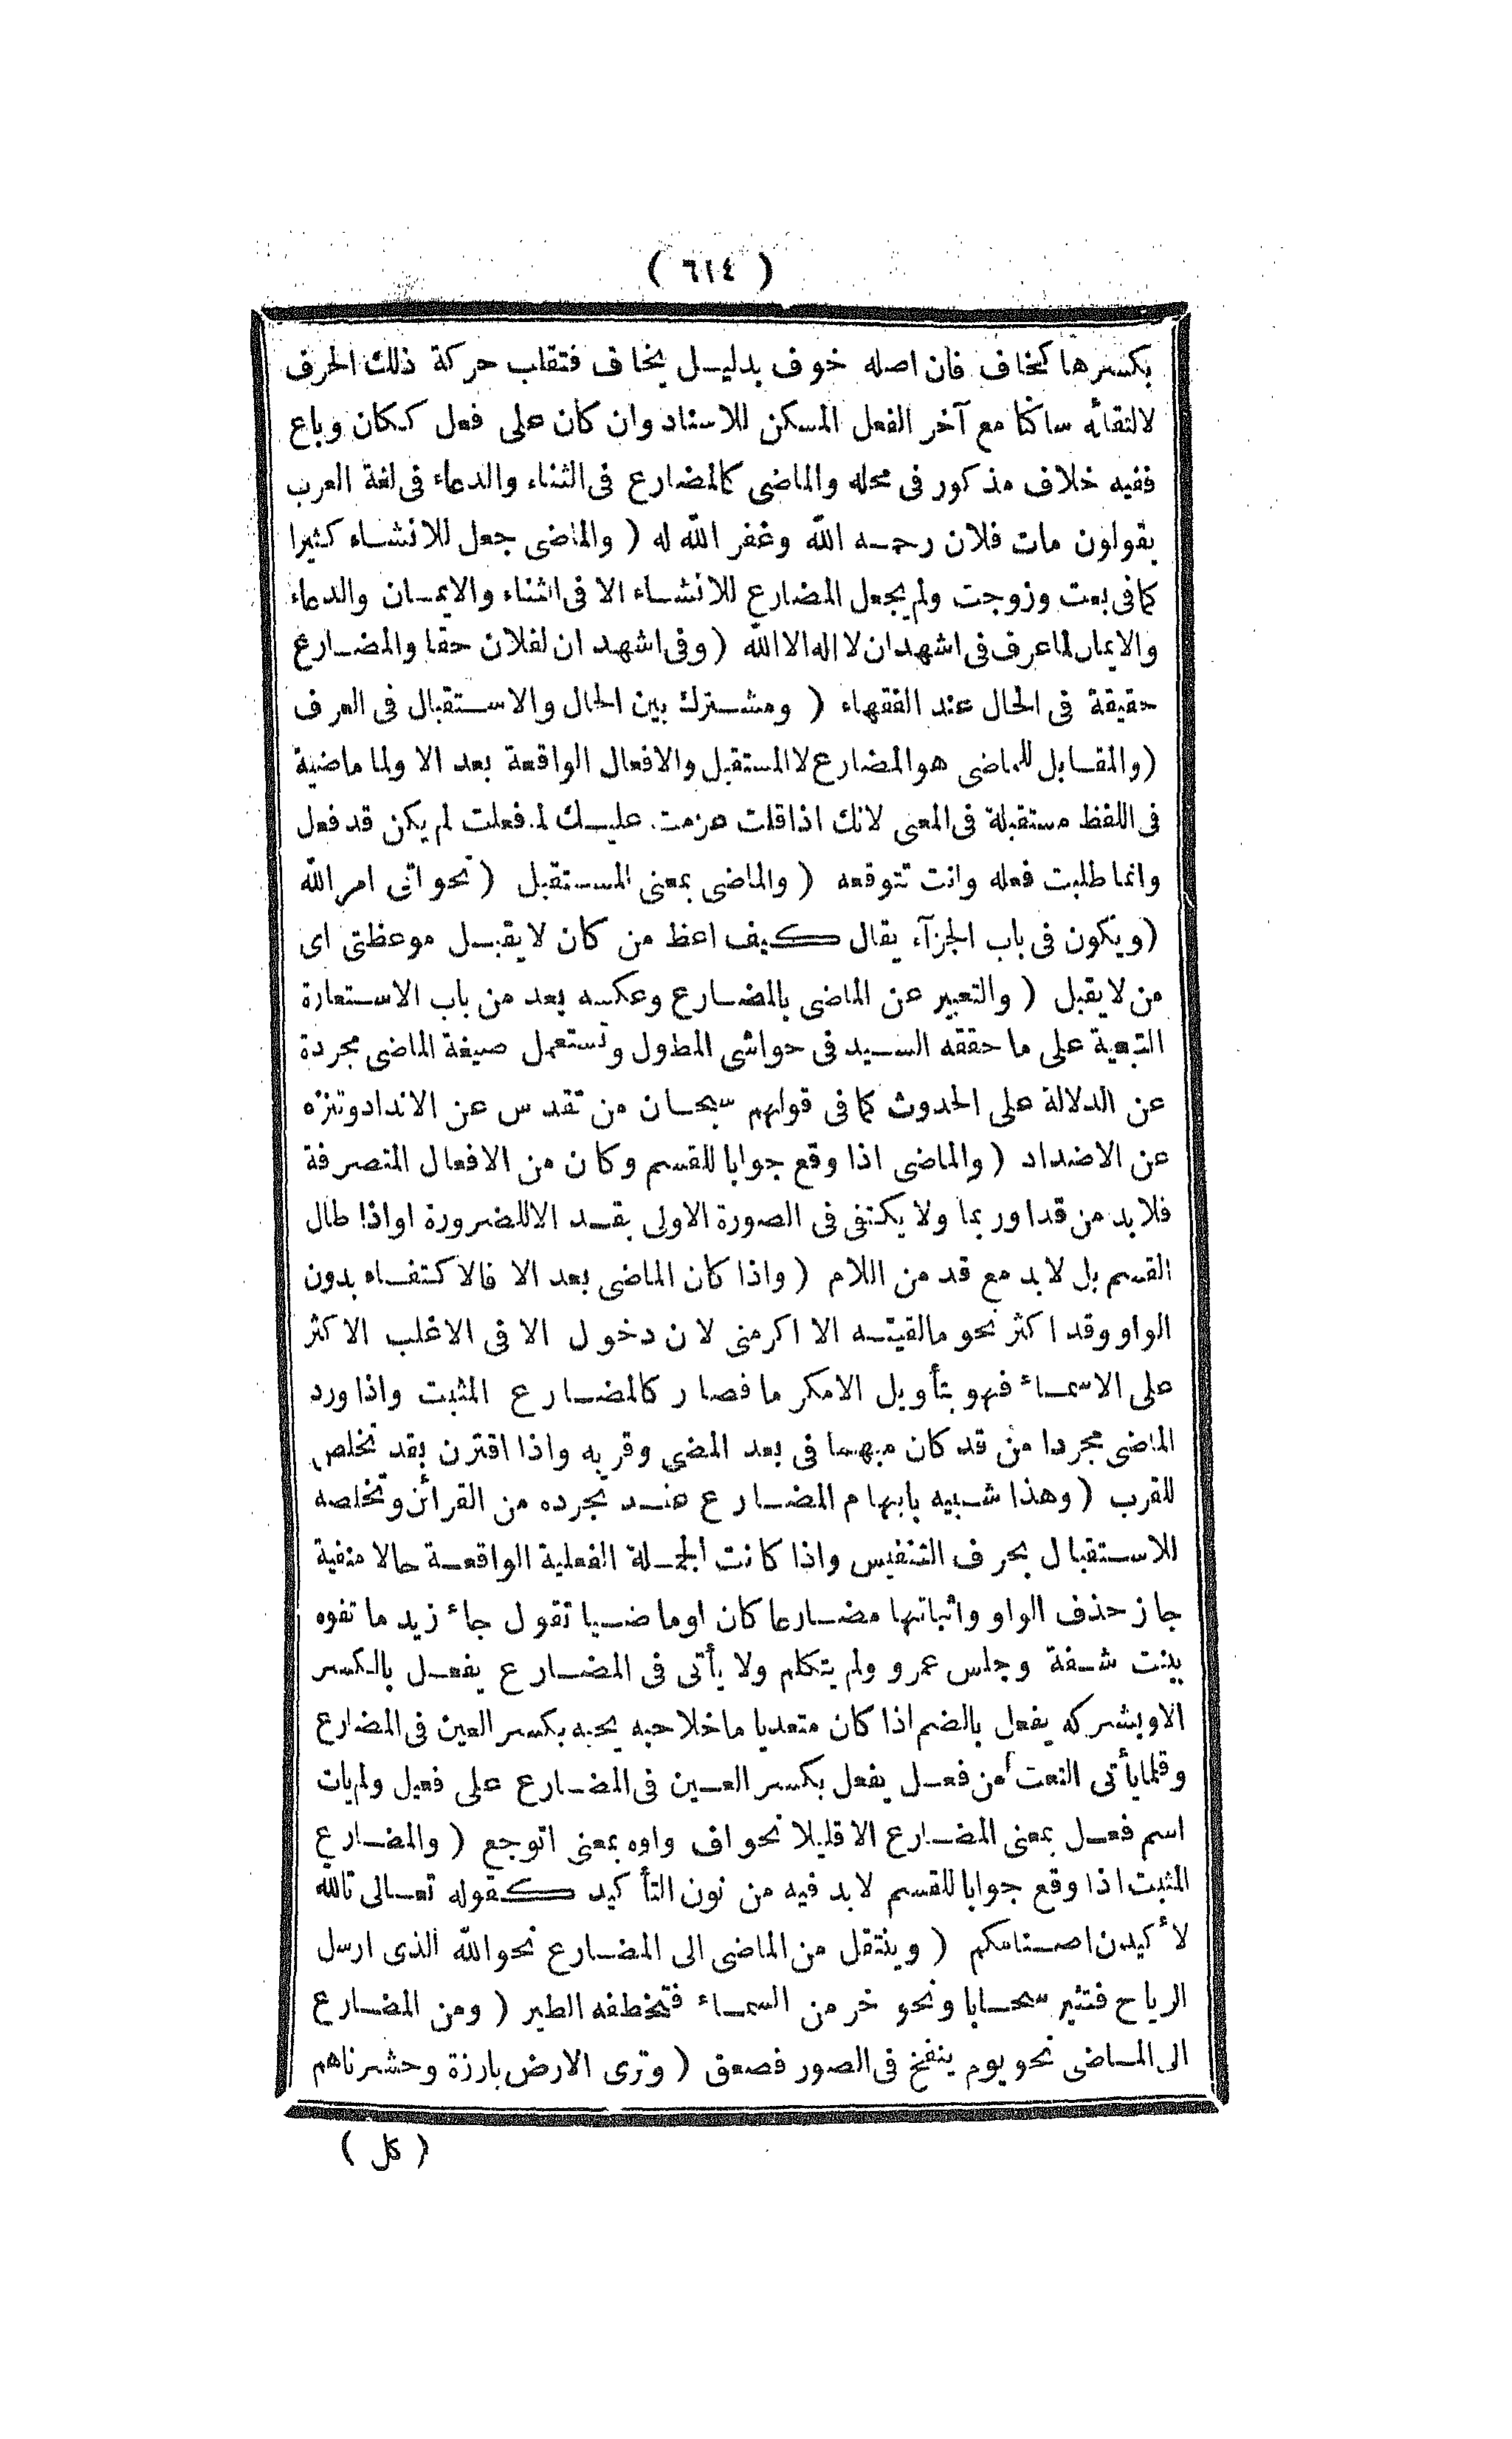 ( ٦١٤ )
بكسرها كخاف فان اصله خوف بدليل يخاف فتقلب حركة ذلك الحرف
لالتقائه ساكنا مع آخر الفعل المسكن للاسناد وان كان على فعل ككان وباع
ففيه خلاف مذكور فى محله والماضى كالمضارع فى الثناء والدعاء فى لغة العرب
يقولون مات فلان رحمه الله وغفر الله له ( والماضى جعل للانشاء كثيرا
كما فى بعت وزوجت ولم يجعل المضارع للانشاء الا فى الثناء والايمان والدعاء
والايمان لما عرف فى اشهد ان لا اله الا الله ( وفى اشهد ان لفلان حقا والمضارع
حقيقة فى الحال عند الفقهاء ( ومشترك بين الحال والاستقبال فى العرف
( والمقابل للماضى هو المضارع لا المستقبل والافعال الواقعة بعد الا ولما ماضية
فى اللفظ مستقبلة فى المعنى لانك اذا قلت عزمت عليك لما فعلت لم يكن قد فعل
وانما طلبت فعله وانت تتوقعه ( والماضى بمعنى المستقبل ( نحو اتى امر الله
( ويكون فى باب الجزآء يقال كيف اعظ من كان لا يقبل موعظتى اى
من لا يقبل ( والتعبير عن الماضى بالمضارع وعكسه يعد من باب الاستعارة
التبعية على ما حققه السيد فى حواشى المطول وتستعمل صيغة الماضى مجردة
عن الدلالة على الحدوث كما فى قولهم سبحان من تقدس عن الانداد وتنزه
عن الاضداد ( والماضى اذا وقع جوابا للقسم وكان من الافعال المتصرفة
فلا بد من قد او ربما ولا يكتفى فى الصورة الاولى بقد الا للضرورة او اذا طال
القسم بل لا بد مع قد من اللام ( واذا كان الماضى بعد الا فالاكتفاء بدون
الواو وقد اكثر نحو ما لقيته الا اكرمنى لان دخول الا فى الاغلب الاكثر
على الاسماء فهو بتأويل الا مكرما فصار كالمضارع المثبت واذا ورد
الماضى مجردا من قد كان مبهما فى بعد المضى وقربه واذا اقترن بقد تخلص
للقرب ( وهذا شبيه بابهام المضارع عند تجرده من القرائن وتخلصه
للاستقبال بحرف التنفيس واذا كانت الجملة الفعلية الواقعة حالا منفية
جاز حذف الواو واثباتها مضارعا كان او ماضيا تقول جاء زيد ما تفوه
ببنت شفة وجلس عمرو ولم يتكلم ولا يأتى فى المضارع يفعل بالكسر
الا ويشركه يفعل بالضم اذا كان متعديا ما خلا حبه يحبه بكسر العين فى المضارع
وقلما يأتى النعت من فعل يفعل بكسر العين فى المضارع على فعيل ولم يات
اسم فعل بمعنى المضارع الا قليلا نحو اف واوه بمعنى اتوجع ( والمضارع
المثبت اذا وقع جوابا للقسم لا بد فيه من نون التأكيد كقوله تعالى تالله
لأكيدن اصنامكم ( وينتقل من الماضى الى المضارع نحو الله الذى ارسل
الرياح فتثير سحابا ونحو خر من السماء فتخطفه الطير ( ومن المضارع
الى الماضى نحو يوم ينفخ فى الصور فصعق ( وترى الارض بارزة وحشرناهم
( كل )